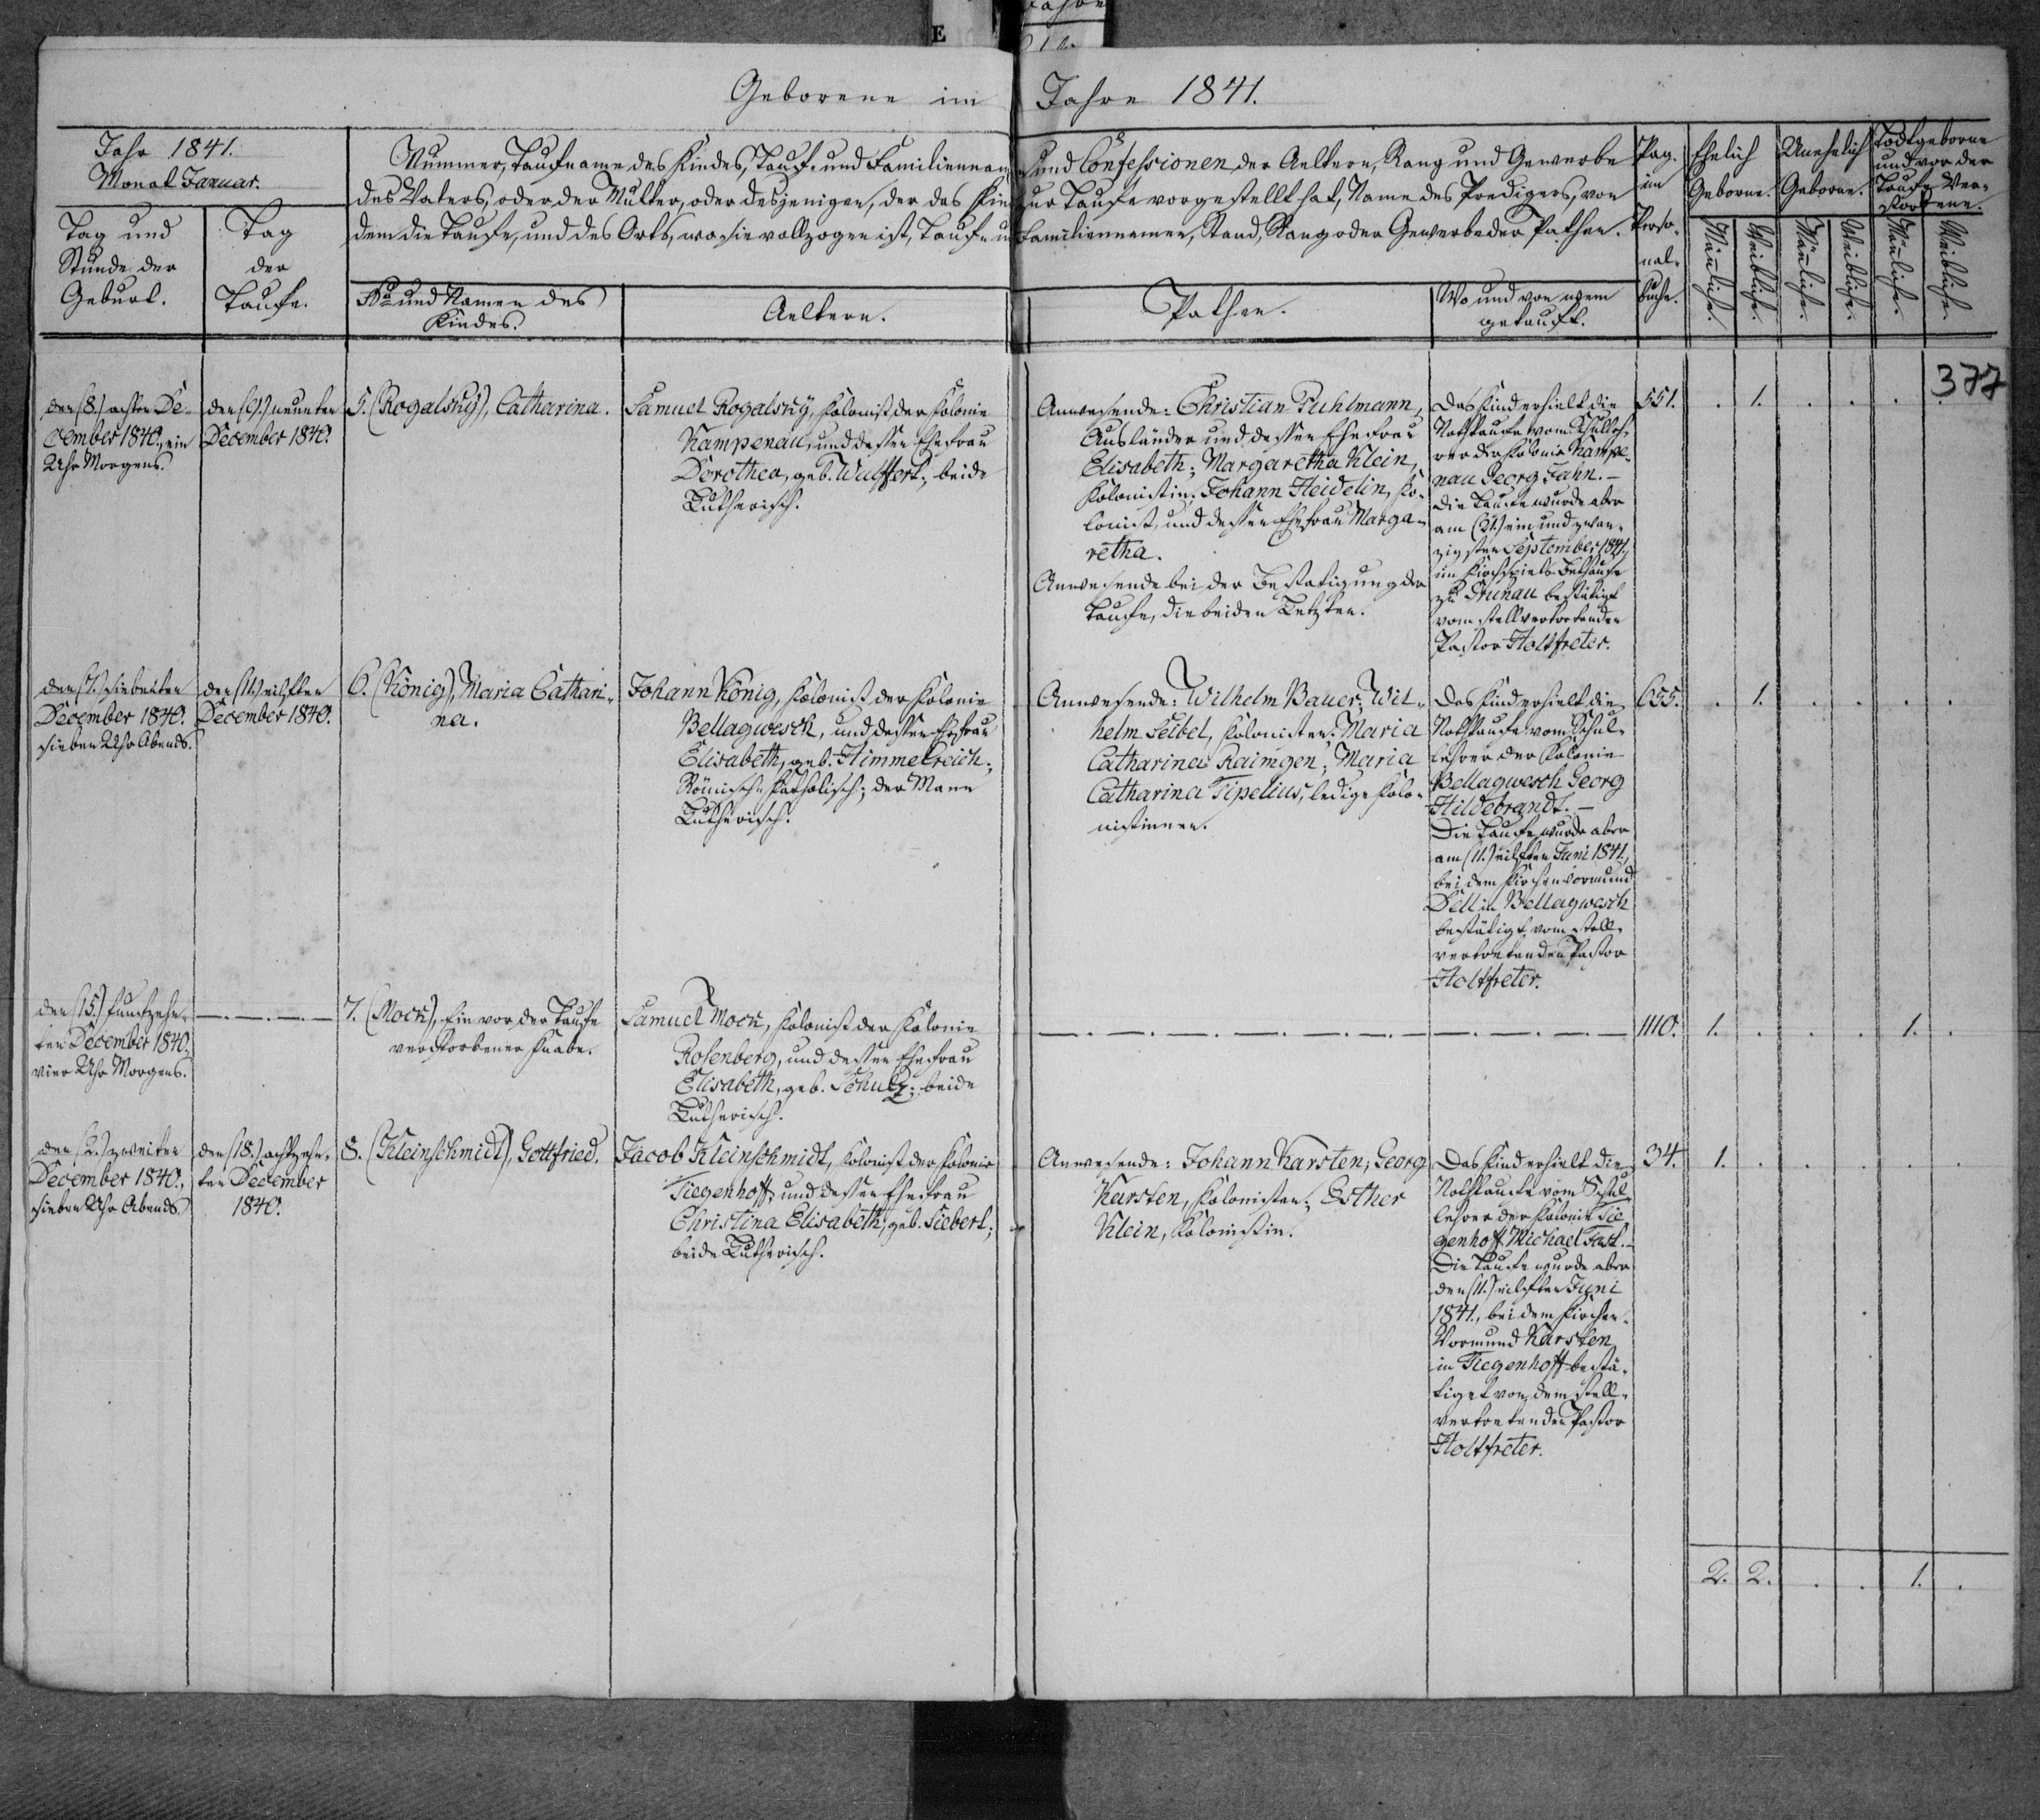 E
Geborene im Jahre 1841.
Jahr 1841.
Monat Januar.
Tag und
Stunde der
Geburt.
Tag
der
Taufe.
Nummer, Taufname des Kindes, Tauf- und Familiennamen und Confessionen der Aeltern, Rang und Gewerbe
des Vaters, oder der Mutter, oder desjenigen, der das Kind zur Taufe vorgestellt hat, Name des Predigers, von
dem die Taufe, und des Orts, wo sie vollzogen ist, Taufe und Familiennamen, Stand, Rang oder Gewerbe der Pathen.
No und Namen des
Kindes.
Aeltern.
Pathen.
Wo und von wem
getauft.
Pag.
im
Perso-
nal-
buche.
Ehelich
Geborne.
Unehelich
Geborne.
Todtgeborne
und vor der
Taufe Ver-
storbene.
Männliche.
Weibliche.
Männliche.
Weibliche.
Männliche.
Weibliche.
377
den (8.) achten De-
cember 1840., ein
Uhr Morgens.
den (9.) neunten
December 1840.
5. (Rogalsky), Catharina.
Samuel Rogalsky, Kolonist der Kolonie
Kampenau, und dessen Ehefrau
Dorothea, geb. Wulffert; beide
Lutherisch.
Anwesende: Christian Puhlmann,
Ausländer und dessen Ehefrau
Elisabeth; Margaretha Klein,
Kolonistin; Johann Heidelin, Ko-
lonist, und dessen Ehefrau Marga-
retha.
Anwesende bei der Bestätigung der
Taufe, die beiden Letzten.
Das Kind erhielt die
Nothtaufe vom Schulleh-
rer der Kolonie Kampe-
nau Georg Jahn. —
Die Taufe wurde aber
am (21.) ein und zwan-
zigsten September 1841.,
im Kirchspiels-Bethause
zu Grunau bestätigt
vom stellvertretenden
Pastor Holtfreter.
551. . 1. . . . .
den (7.) siebenten
December 1840.
sieben Uhr Abends.
den (11.) eilften
December 1840.
6. (König), Maria Cathari-
na.
Johann König, Kolonist der Kolonie
Bellagwesch, und dessen Ehefrau
Elisabeth, geb. Himmelreich;
Römisch-Katholisch; der Mann
Lutherisch.
Anwesende: Wilhelm Bauer; Wil-
helm Seibel, Kolonisten; Maria
Catharina Raimgen; Maria
Catharina Tipelius, ledige Kolo-
nistinnen.
Das Kind erhielt die
Nothtaufe vom Schul-
lehrer der Kolonie
Bellagwesch Georg
Hildebrandt. —
Die Taufe wurde aber
am (11.) eilften Juni 1841.,
bei dem Kirchenvormund
Dell in Bellagwesch
bestätigt vom stell-
vertretenden Pastor
Holtfreter.
655. . 1. . . . .
den (15.) funfzehn-
ten December 1840.
vier Uhr Morgens.
7. (Mock), Ein vor der Taufe
verstorbener Knabe.
Samuel Mock, Kolonist der Kolonie
Rosenberg, und dessen Ehefrau
Elisabeth, geb. Schulz; beide
Lutherisch.
1110. 1. . . . 1. .
den (2.) zweiten
December 1840.,
sieben Uhr Abends.
den (18.) achtzehn-
ten December
1840.
8. (Kleinschmidt), Gottfried.
Jacob Kleinschmidt, Kolonist der Kolonie
Tiegenhoff, und dessen Ehefrau
Christina Elisabeth, geb. Siebert;
beide Lutherisch.
Anwesende: Johann Karsten; Georg
Karsten, Kolonisten; Esther
Klein, Kolonistin.
Das Kind erhielt die
Nothtaufe vom Schul-
lehrer der Kolonie Tie
genhoff Michael Fast. —
Die Taufe wurde aber
den (11.) eilften Juni
1841., bei dem Kirchen-
Vormund Karsten
in Tiegenhoff bestä-
tiget von dem stell-
vertretenden Pastor
Holtfreter.
34. 1. . . . . .
2. 2. . . 1. .